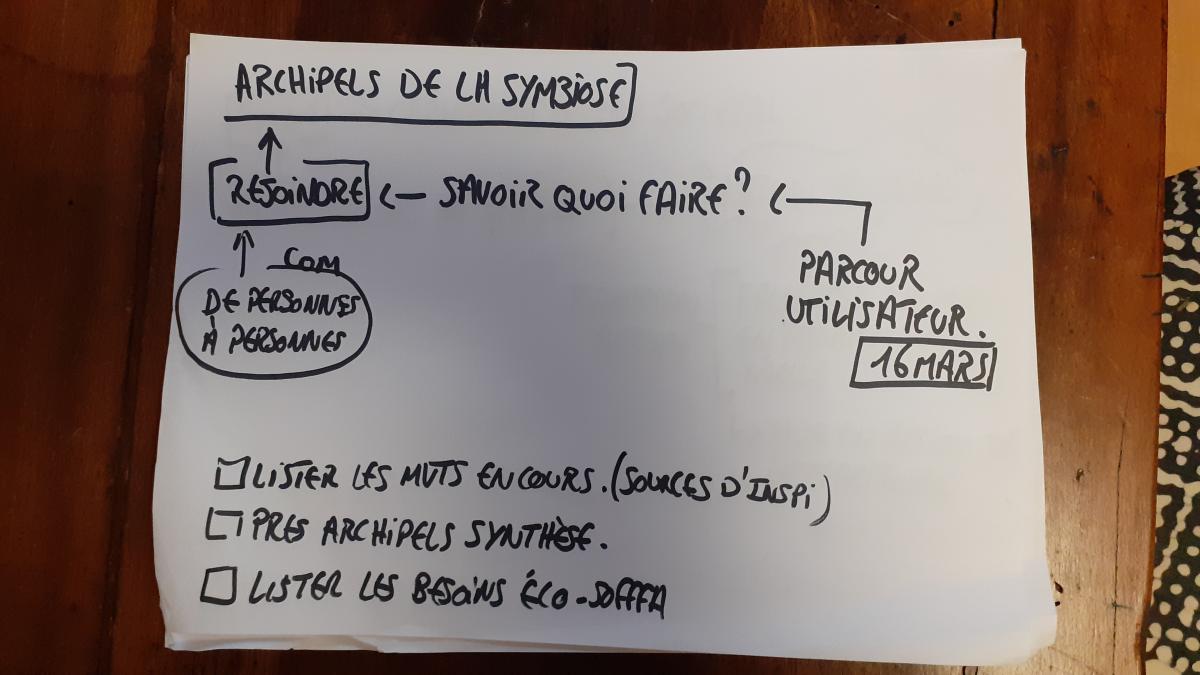 ARCHIPELS DE LA SYMBIOSE
REJOINDRE ← SAVOIR QUOI FAIRE ? ←
COM
DE PERSONNES
À PERSONNES
PARCOUR
UTILISATEUR.
16 MARS
LISTER LES MVTS EN COURS. (SOURCES D'INSPI)
PRES ARCHIPELS SYNTHÈSE.
LISTER LES BESOINS ÉCO-